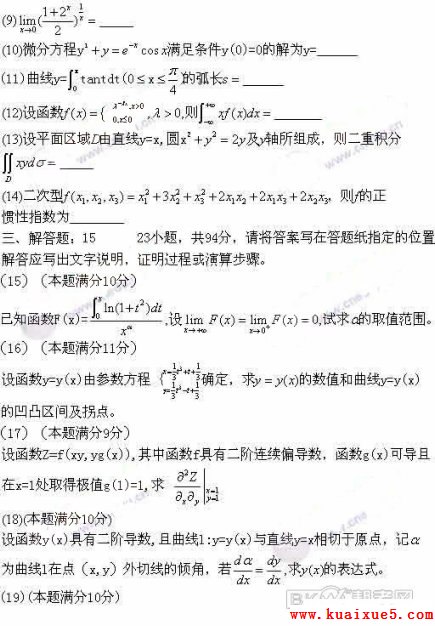 (9) lim x→0 ((1+2^x)/2)^(1/x) = ____
(10)微分方程y¹+y=e^(-x) cos x满足条件y(0)=0的解为y=____
(11)曲线y=∫₀ˣ tantdt(0≤x≤π/4)的弧长s=____
(12)设函数f(x)={ , λ>0,则∫_{-∞}^{+∞} xf(x)dx=____
(13)设平面区域D由直线y=x,圆x²+y²=2y及y轴所组成，则二重积分
∬_D xydσ=____
(14)二次型f(x₁,x₂,x₃)=x₁²+3x₂²+x₃²+2x₁x₂+2x₁x₃+2x₂x₃，则f的正
惯性指数为____
三、解答题：15 23小题，共94分，请将答案写在答题纸指定的位置
解答应写出文字说明，证明过程或演算步骤。
(15)（本题满分10分）
已知函数F(x)=∫₀ˣ ln(1+t²)dt / x^α,设 lim x→+∞ F(x)=lim x→0⁺ F(x)=0,试求α的取值范围。
(16)（本题满分11分）
设函数y=y(x)由参数方程 { x=1/3 t³+t+1/3 y=1/3 t³-t+1/3 确定，求y=y(x)的数值和曲线y=y(x)
的凹凸区间及拐点。
(17)（本题满分9分）
设函数Z=f(xy,yg(x)),其中函数f具有二阶连续偏导数，函数g(x)可导且
在x=1处取得极值g(1)=1,求 ∂²Z/∂x∂y |x=1 y=1
(18)(本题满分10分)
设函数y(x)具有二阶导数,且曲线l:y=y(x)与直线y=x相切于原点，记α
为曲线l在点（x,y）外切线的倾角，若dα/dx=dy/dx,求y(x)的表达式。
(19)(本题满分10分)
www.kuaixue5.com